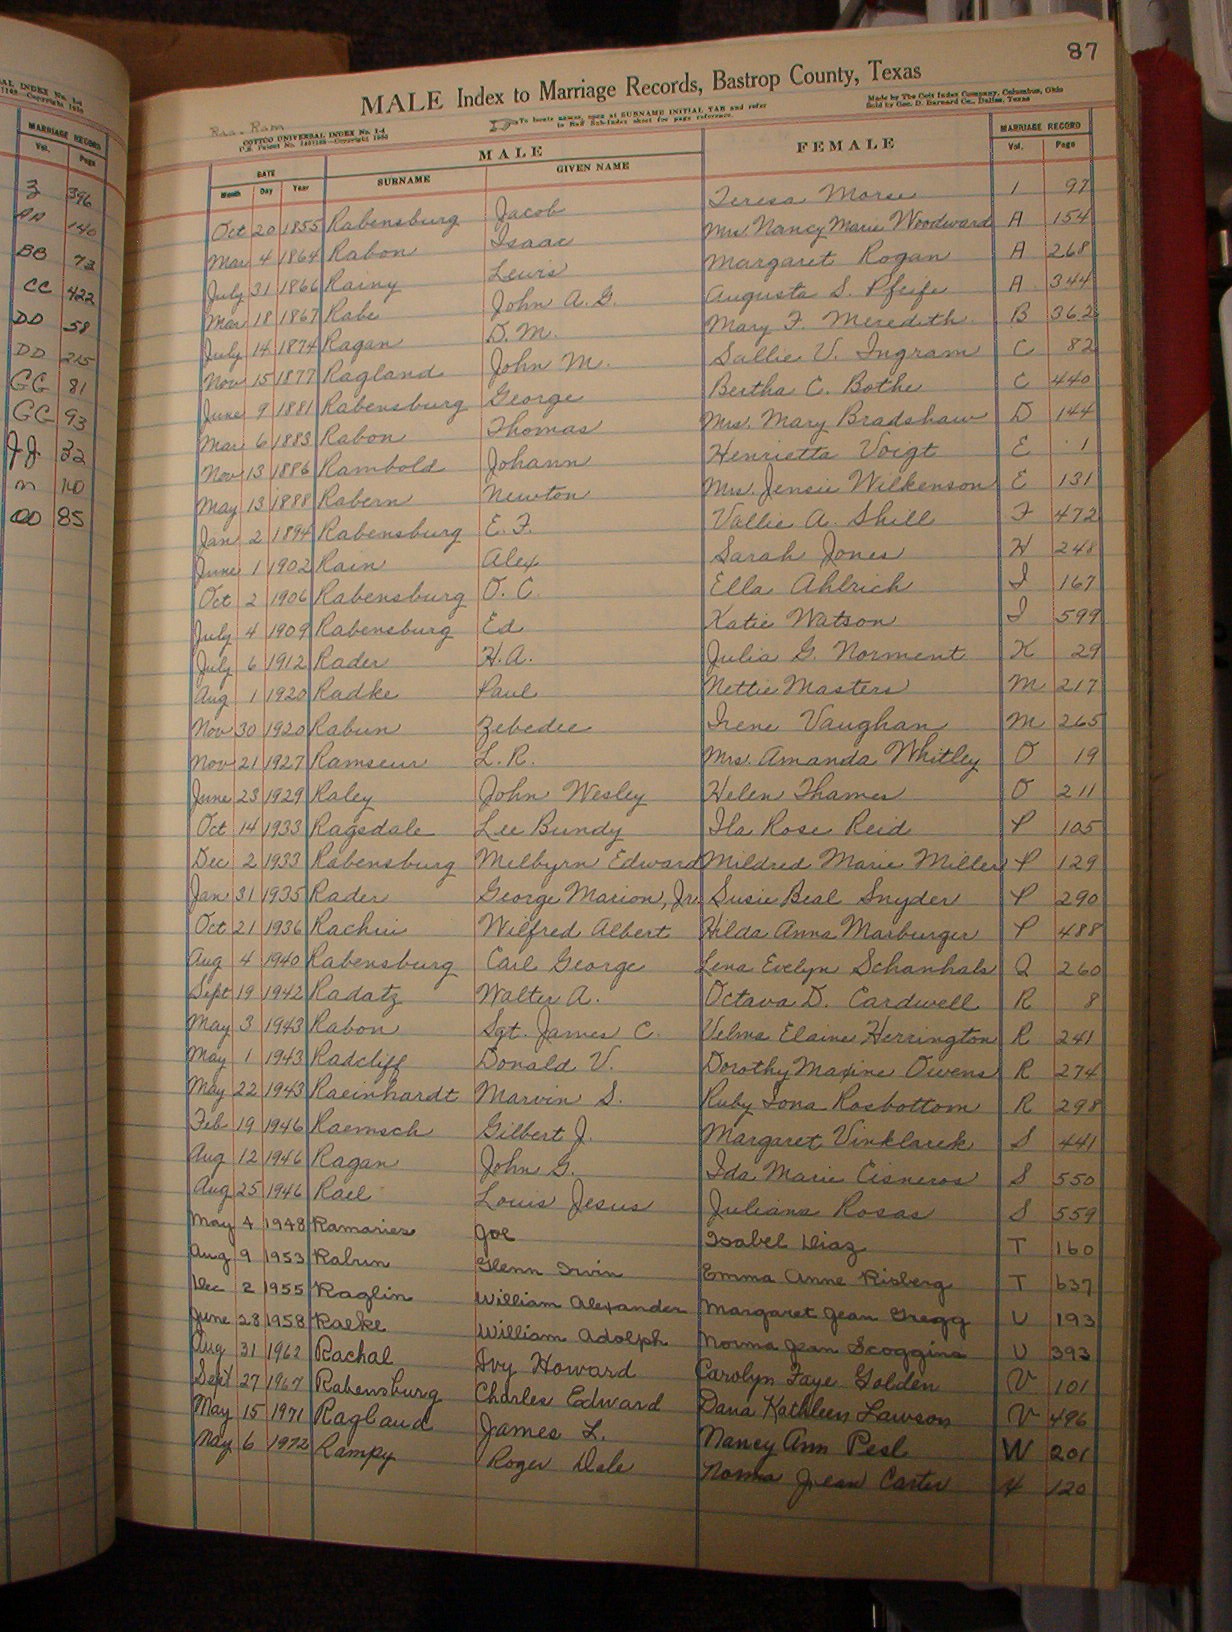 AL INDEX No. 1-d
1930
MARRIAGE RECORD
Vol. Page
3 396
AA 140
BB 73
CC 422
DD 58
DD 215
GG 81
GG 93
JJ 32
M 10
OO 85
87
MALE Index to Marriage Records, Bastrop County, Texas
Raa-Ram
COTTCO UNIVERSAL INDEX No. 1-d
To locate names, open at SURNAME INITIAL TAB and refer
to Sub-Index sheet for page reference.
Made by The Cott Index Company, Columbus, Ohio
Sold by Geo. D. Barnard Co., Dallas, Texas
DATE MALE FEMALE MARRIAGE RECORD
Month Day Year SURNAME GIVEN NAME Vol. Page
Oct 20 1855 Rabensburg Jacob Teresa Morse 1 97
Mar 4 1864 Rabon Isaac Mrs Nancy Marie Woodward A 154
July 31 1866 Rainy Lewis Margaret Rogan A 268
Mar 18 1867 Rabe John A. G. Augusta S. Pfeife A 344
July 14 1874 Ragan D. M. Mary F. Meredith B 362
Nov 15 1877 Ragland John M. Sallie V. Ingram C 82
June 9 1881 Rabensburg George Bertha C. Bothe C 440
Mar 6 1883 Rabon Thomas Mrs. Mary Bradshaw D 144
Nov 13 1886 Rambold Johann Henrietta Voigt E 1
May 13 1888 Rabern Newton Mrs. Jensie Wilkenson E 131
Jan 2 1894 Rabensburg E. F. Vallie A. Shill F 472
June 1 1902 Rain Alex Sarah Jones H 248
Oct 2 1906 Rabensburg O. C. Ella Ahlrich I 167
July 4 1909 Rabensburg Ed Katie Watson I 599
July 6 1912 Rader H. A. Julia G. Norment K 29
Aug 1 1920 Radke Paul Nettie Masters M 217
Nov 30 1920 Rabun Zebedee Irene Vaughan M 265
Nov 21 1927 Ramseur L. R. Mrs. Amanda Whitley O 19
June 23 1929 Raley John Wesley Helen Thames O 211
Oct 14 1933 Ragsdale Lee Bundy Ila Rose Reid P 105
Dec 2 1933 Rabensburg Melbyrn Edward Mildred Marie Miller P 129
Jan 31 1935 Rader George Marion, Jr. Susie Beal Snyder P 290
Oct 21 1936 Rachui Wilfred Albert Hilda Anna Marburger P 488
Aug 4 1940 Rabensburg Carl George Lena Evelyn Schanhals Q 260
Sept 19 1942 Radatz Walter A. Octava D. Cardwell R 8
May 3 1943 Rabon Sgt. James C. Velma Elaine Herrington R 241
May 1 1943 Radcliff Donald V. Dorothy Maxine Owens R 274
May 22 1943 Raeinhardt Marvin S. Ruby Iona Rosbottom R 298
Feb 19 1946 Raemsch Gilbert J. Margaret Vinklarek S 441
Aug 12 1946 Ragan John G. Ida Marie Cisneros S 550
Aug 25 1946 Rael Louis Jesus Juliana Rosas S 559
May 4 1948 Ramaries Joe Isabel Diaz T 160
Aug 9 1953 Rabun Glenn Irvin Emma Anne Risberg T 637
Dec 2 1955 Raglin William Alexander Margaret Jean Gregg U 193
June 28 1958 Raeke William Adolph Norma Jean Scoggins U 393
Aug 31 1962 Rachal Ivy Howard Carolyn Faye Golden V 101
Sept 27 1967 Rabensburg Charles Edward Dana Kathleen Lawson V 496
May 15 1971 Ragland James L. Nancy Ann Pesl W 201
May 6 1972 Rampy Roger Dale Norma Jean Carter X 120